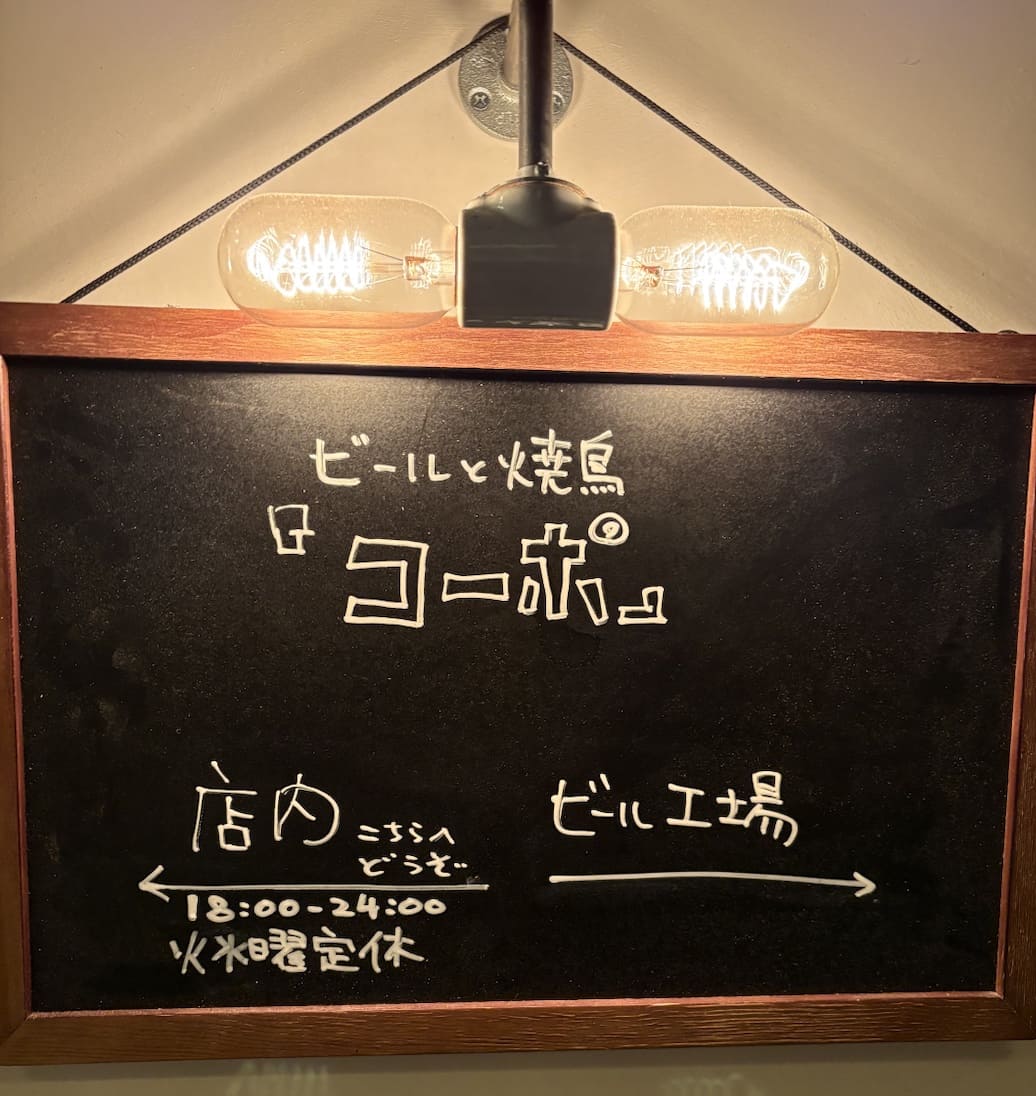 ビールと焼鳥
『コーポ』
店内 こちらへ
どうぞ
←
18:00-24:00
火水曜定休
ビール工場
→